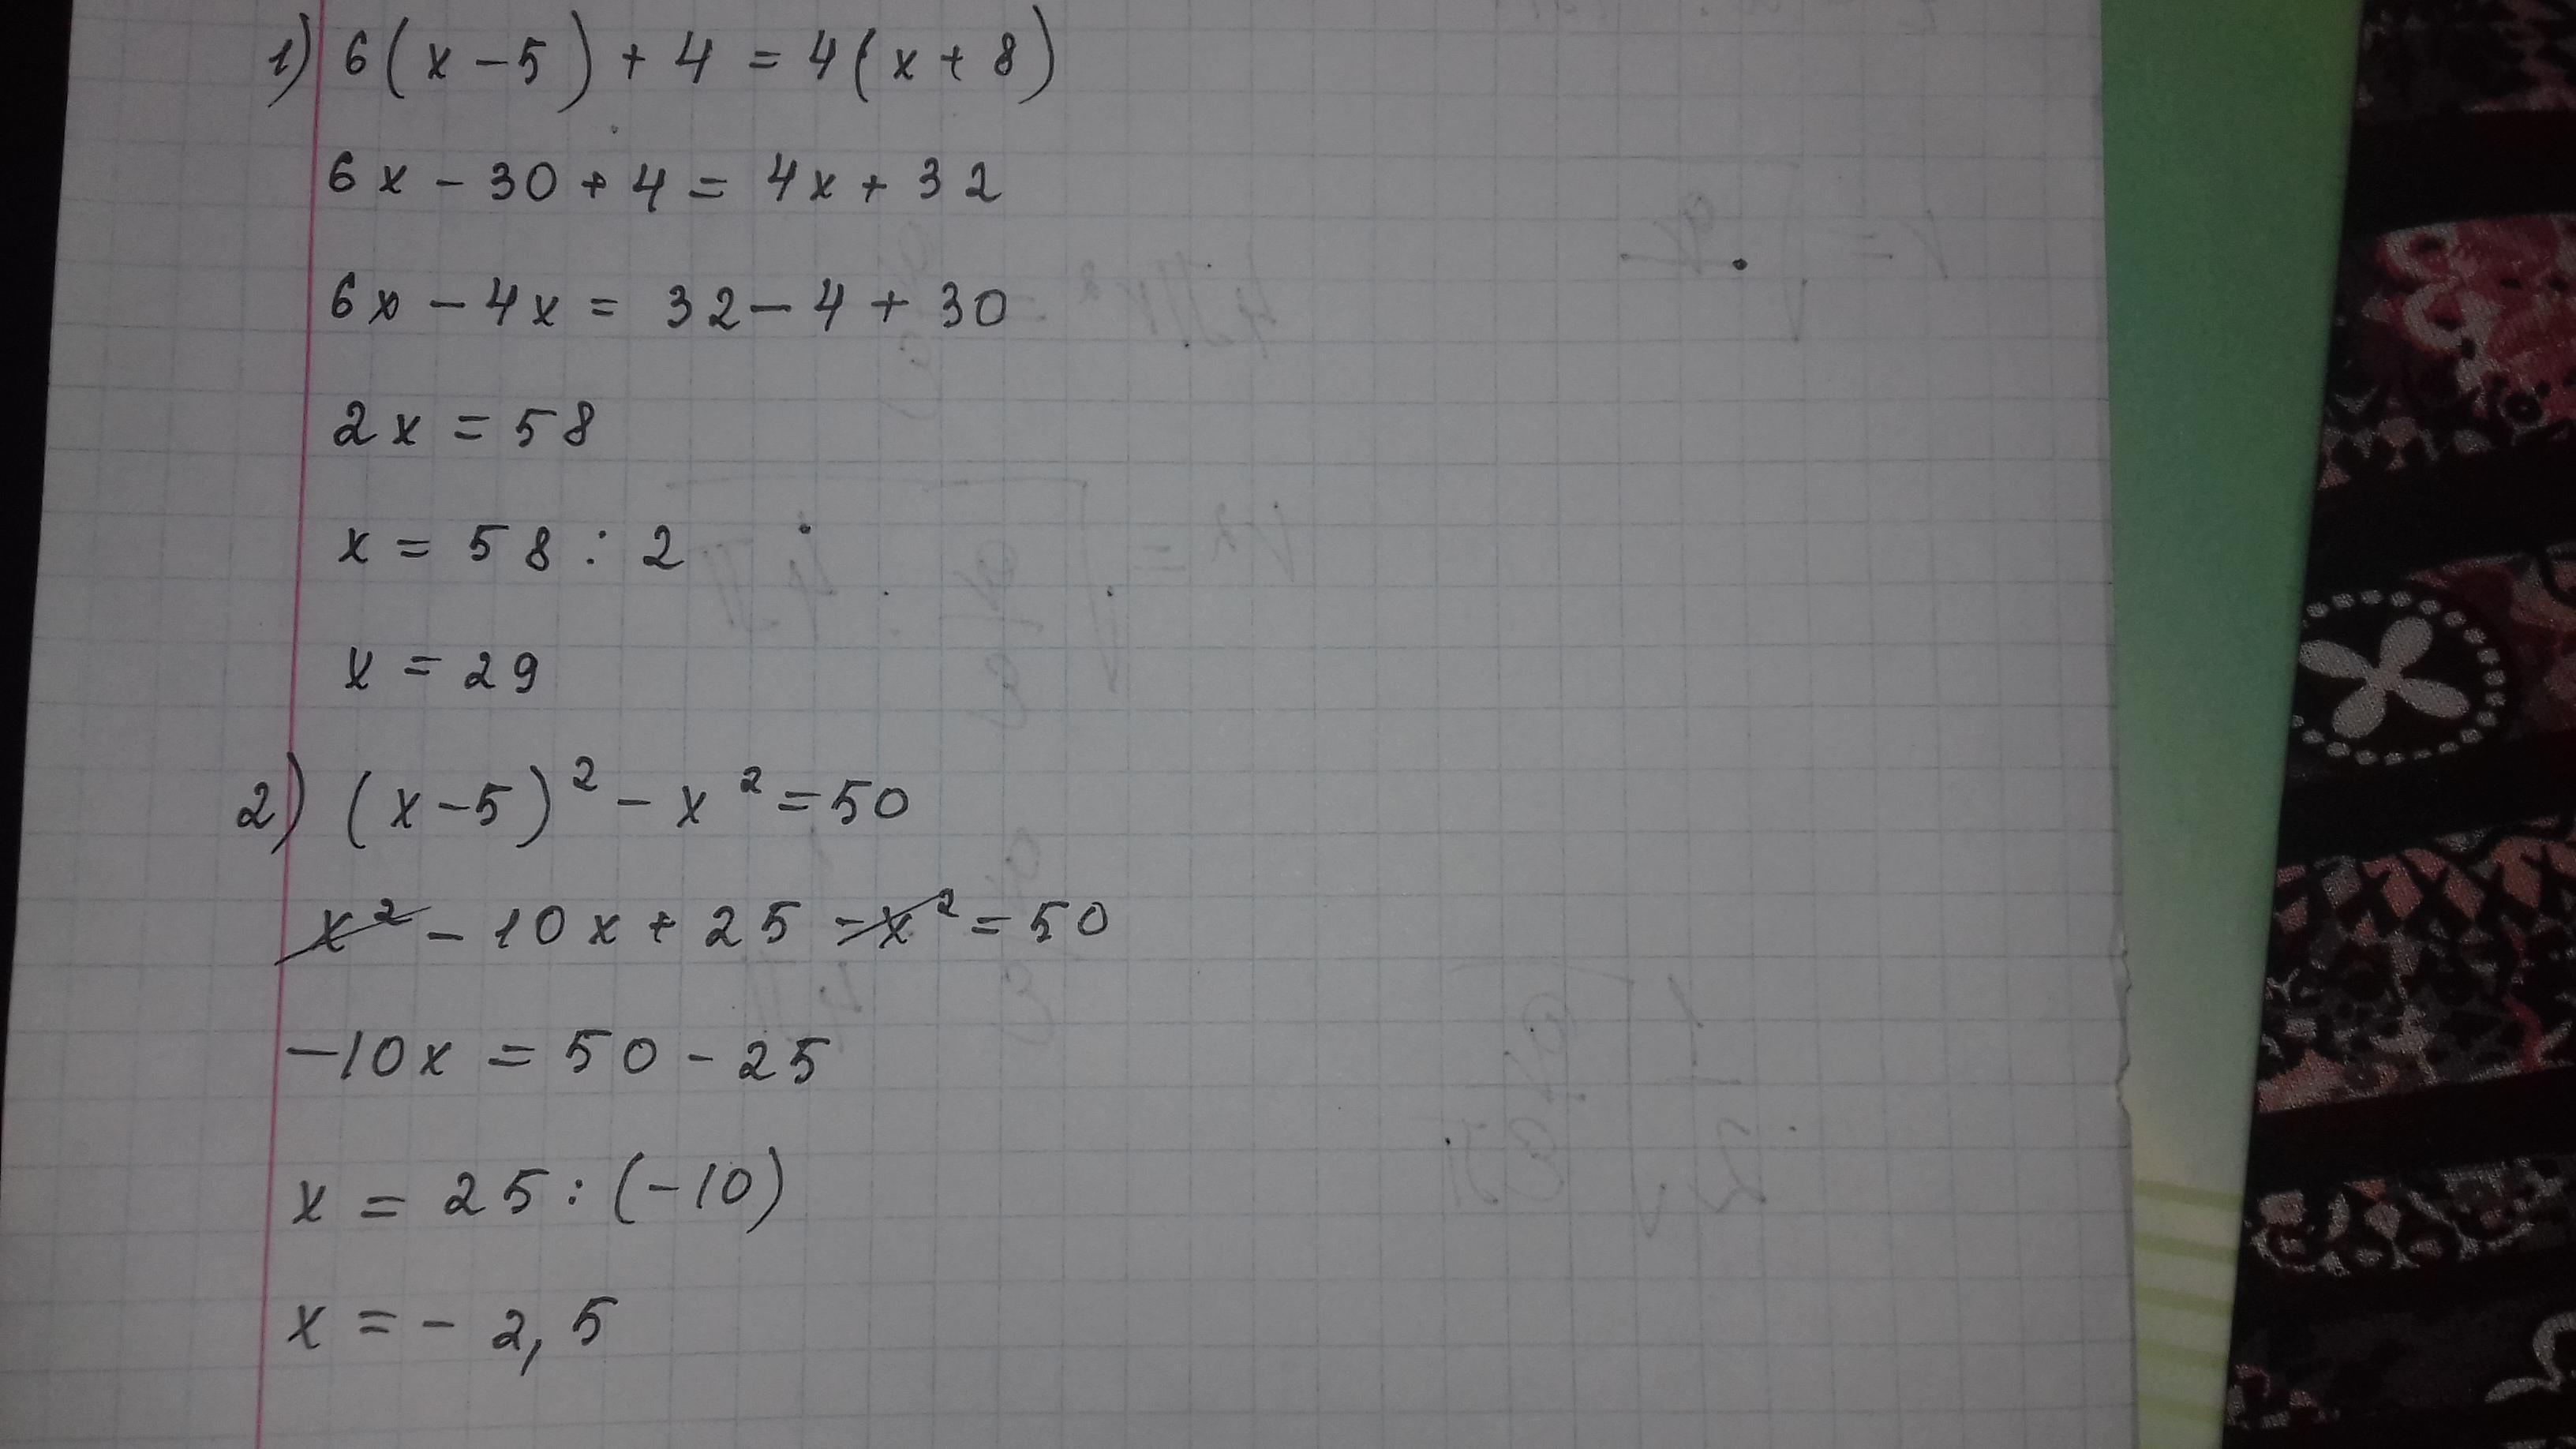 1) 6(x-5)+4=4(x+8)
6x-30+4=4x+32
6x-4x=32-4+30
2x=58
x=58:2
x=29
2) (x-5)²-x²=50
x²-10x+25-x²=50
-10x=50-25
x=25:(-10)
x=-2,5